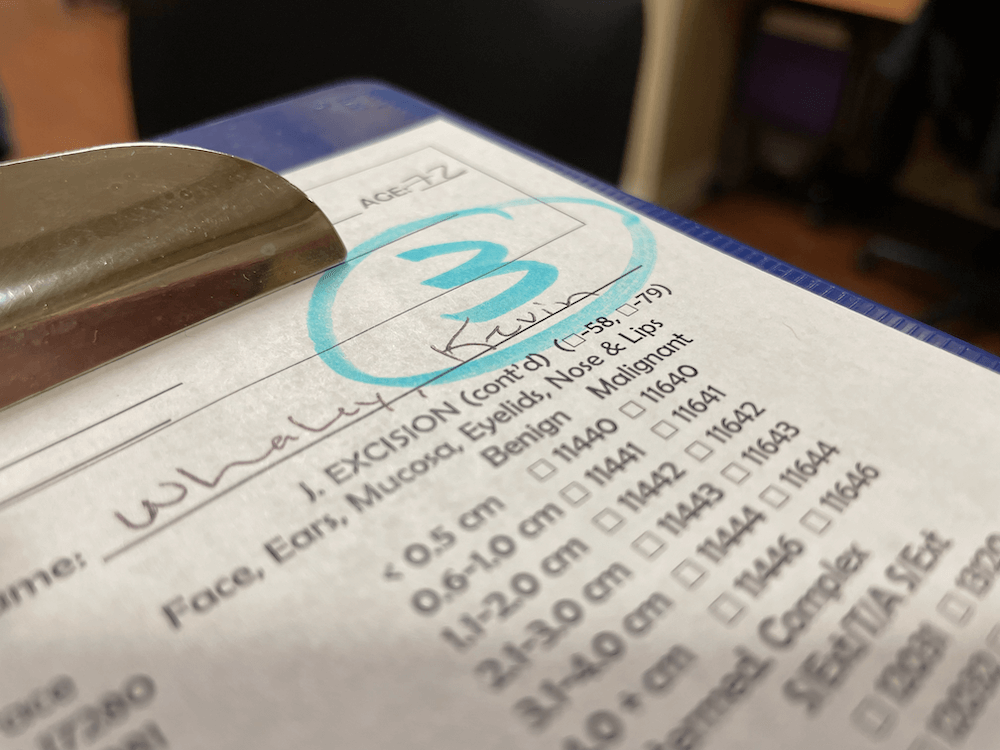 AGE: 72
3
Whaley, Kevin
J. EXCISION (cont'd) (□-58, □-79)
Face, Ears, Mucosa, Eyelids, Nose & Lips
Benign Malignant
< 0.5 cm □ 11440 □ 11640
0.6-1.0 cm □ 11441 □ 11641
1.1-2.0 cm □ 11442 □ 11642
2.1-3.0 cm □ 11443 □ 11643
3.1-4.0 cm □ 11444 □ 11644
+ cm □ 11446 □ 11646
Complex
S/Ext/T/A S/Ext
□ 12031
17280